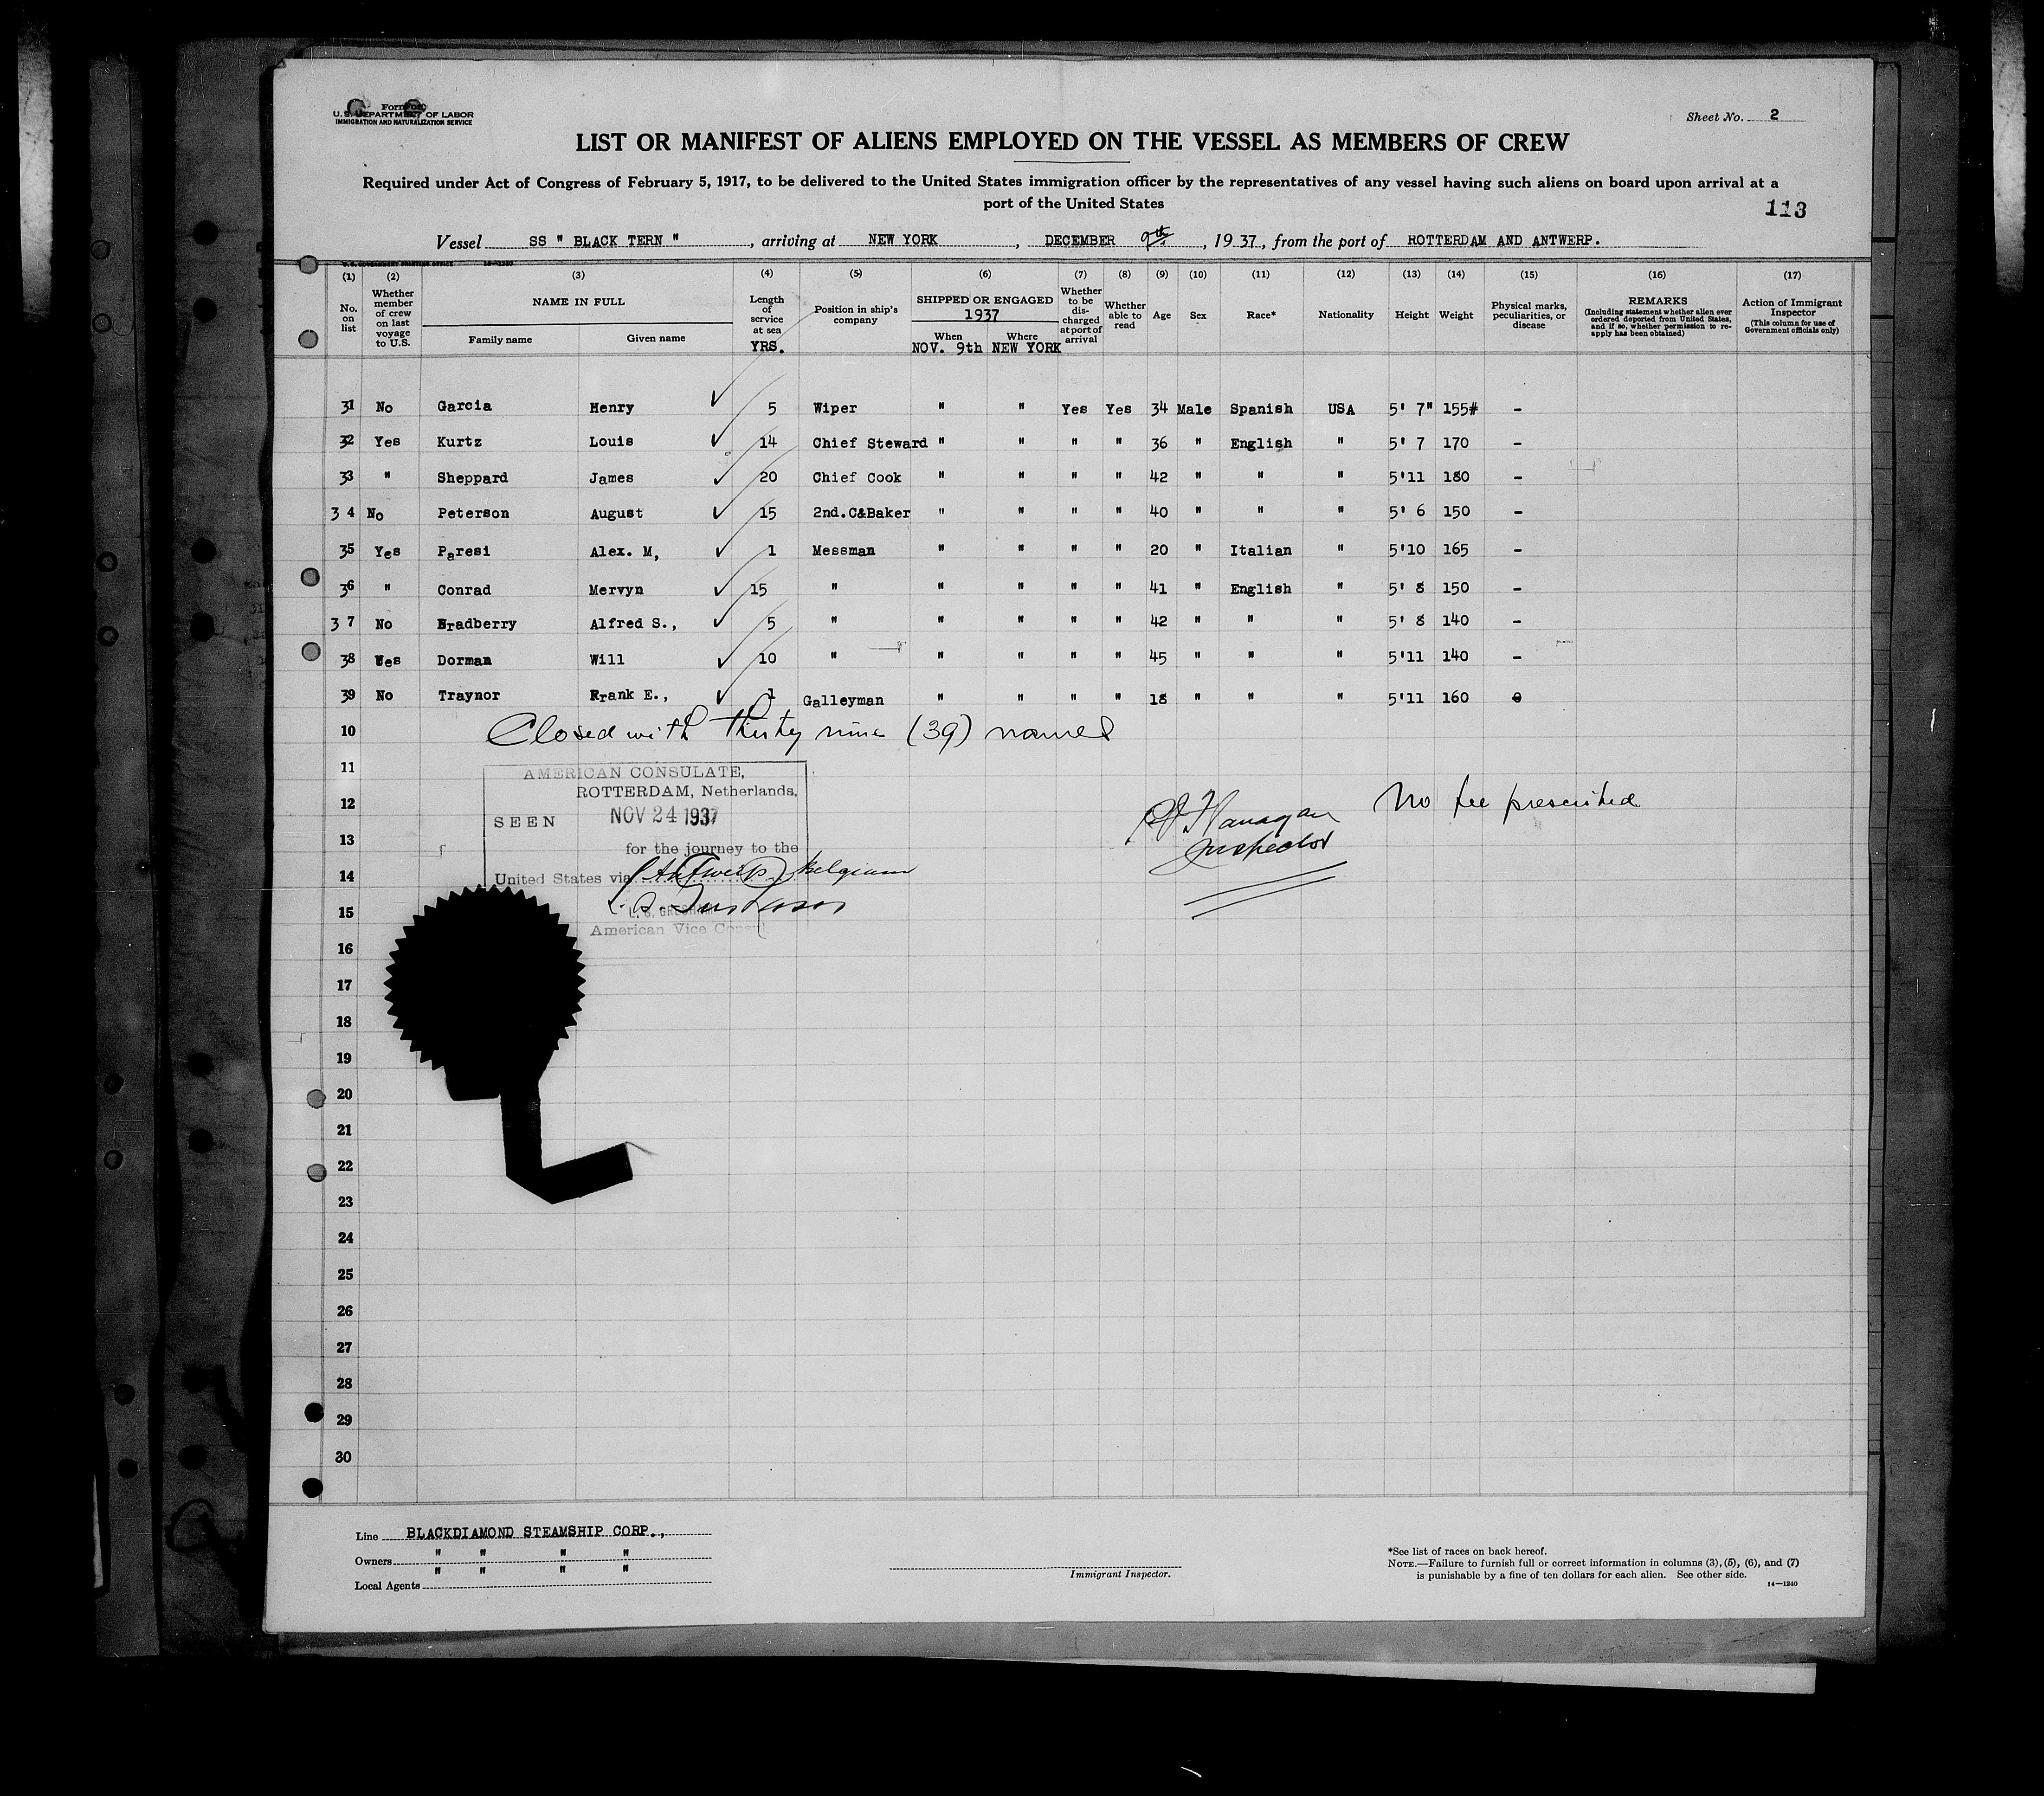 U.S. DEPARTMENT OF LABOR
IMMIGRATION AND NATURALIZATION SERVICE
Sheet No. 2
LIST OR MANIFEST OF ALIENS EMPLOYED ON THE VESSEL AS MEMBERS OF CREW
Required under Act of Congress of February 5, 1917, to be delivered to the United States immigration officer by the representatives of any vessel having such aliens on board upon arrival at a
port of the United States
113
Vessel SS " BLACK TERN ", arriving at NEW YORK, DECEMBER 9th, 1937, from the port of ROTTERDAM AND ANTWERP.
U.S. GOVERNMENT PRINTING OFFICE 14-1240
(1) (2) (3) (4) (5) (6) (7) (8) (9) (10) (11) (12) (13) (14) (15) (16) (17)
No. on list
Whether member of crew on last voyage to U.S.
NAME IN FULL
Family name Given name
Length of service at sea
YRS.
Position in ship's company
SHIPPED OR ENGAGED
1937
When Where
NOV. 9th NEW YORK
Whether to be discharged at port of arrival
Whether able to read
Age
Sex
Race*
Nationality
Height
Weight
Physical marks, peculiarities, or disease
REMARKS
(Including statement whether alien ever ordered deported from United States, and if so, whether permission to reapply has been obtained)
Action of Immigrant Inspector
(This column for use of Government officials only)
31 No Garcia Henry 5 Wiper " " Yes Yes 34 Male Spanish USA 5' 7" 155# -
32 Yes Kurtz Louis 14 Chief Steward " " " " 36 " English " 5' 7 170 -
33 " Sheppard James 20 Chief Cook " " " " 42 " " " 5'11 180 -
3 4 No Peterson August 15 2nd.C&Baker " " " " 40 " " " 5' 6 150 -
35 Yes Paresi Alex. M, 1 Messman " " " " 20 " Italian " 5'10 165 -
36 " Conrad Mervyn 15 " " " " " 41 " English " 5' 8 150 -
3 7 No Bradberry Alfred S., 5 " " " " " 42 " " " 5' 8 140 -
38 Yes Dorman Will 10 " " " " " 45 " " " 5'11 140 -
39 No Traynor Frank E., 1 Galleyman " " " " 18 " " " 5'11 160
10 Closed with thirty nine (39) names
11
12
13
14
15
16
17
18
19
20
21
22
23
24
25
26
27
28
29
30
AMERICAN CONSULATE,
ROTTERDAM, Netherlands.
SEEN NOV 24 1937
for the journey to the
United States via Antwerp, Belgium
American Vice Consul
Flanagan
Inspector
No fee prescribed
Line BLACKDIAMOND STEAMSHIP CORP.,
Owners " " " "
Local Agents " " " "
Immigrant Inspector.
*See list of races on back hereof.
NOTE.—Failure to furnish full or correct information in columns (3), (5), (6), and (7)
is punishable by a fine of ten dollars for each alien. See other side.
14—1240